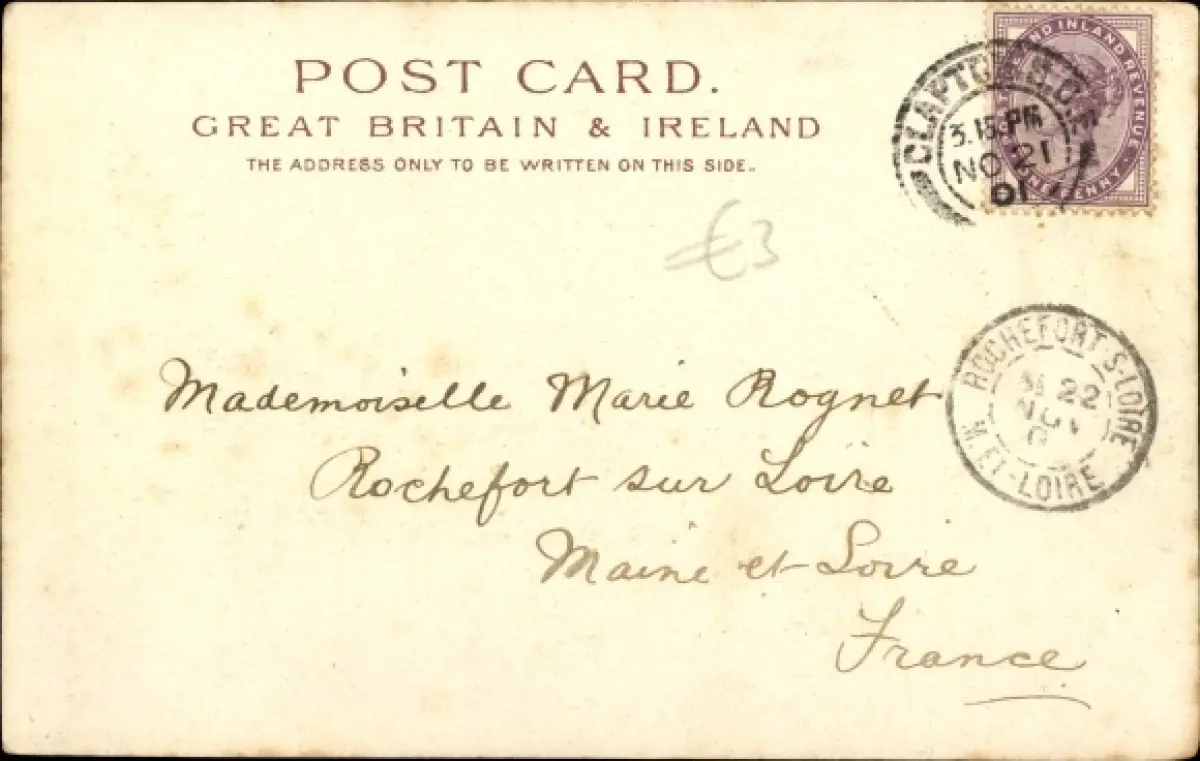 POST CARD.
GREAT BRITAIN & IRELAND
THE ADDRESS ONLY TO BE WRITTEN ON THIS SIDE.
AND INLAND REVENUE
PENNY
CLAPTON
3.15 PM
NO 21
01
€3
ROCHEFORT-S-LOIRE
22
M. ET-LOIRE
Mademoiselle Marie Rognet
Rochefort sur Loire
Maine et Loire
France